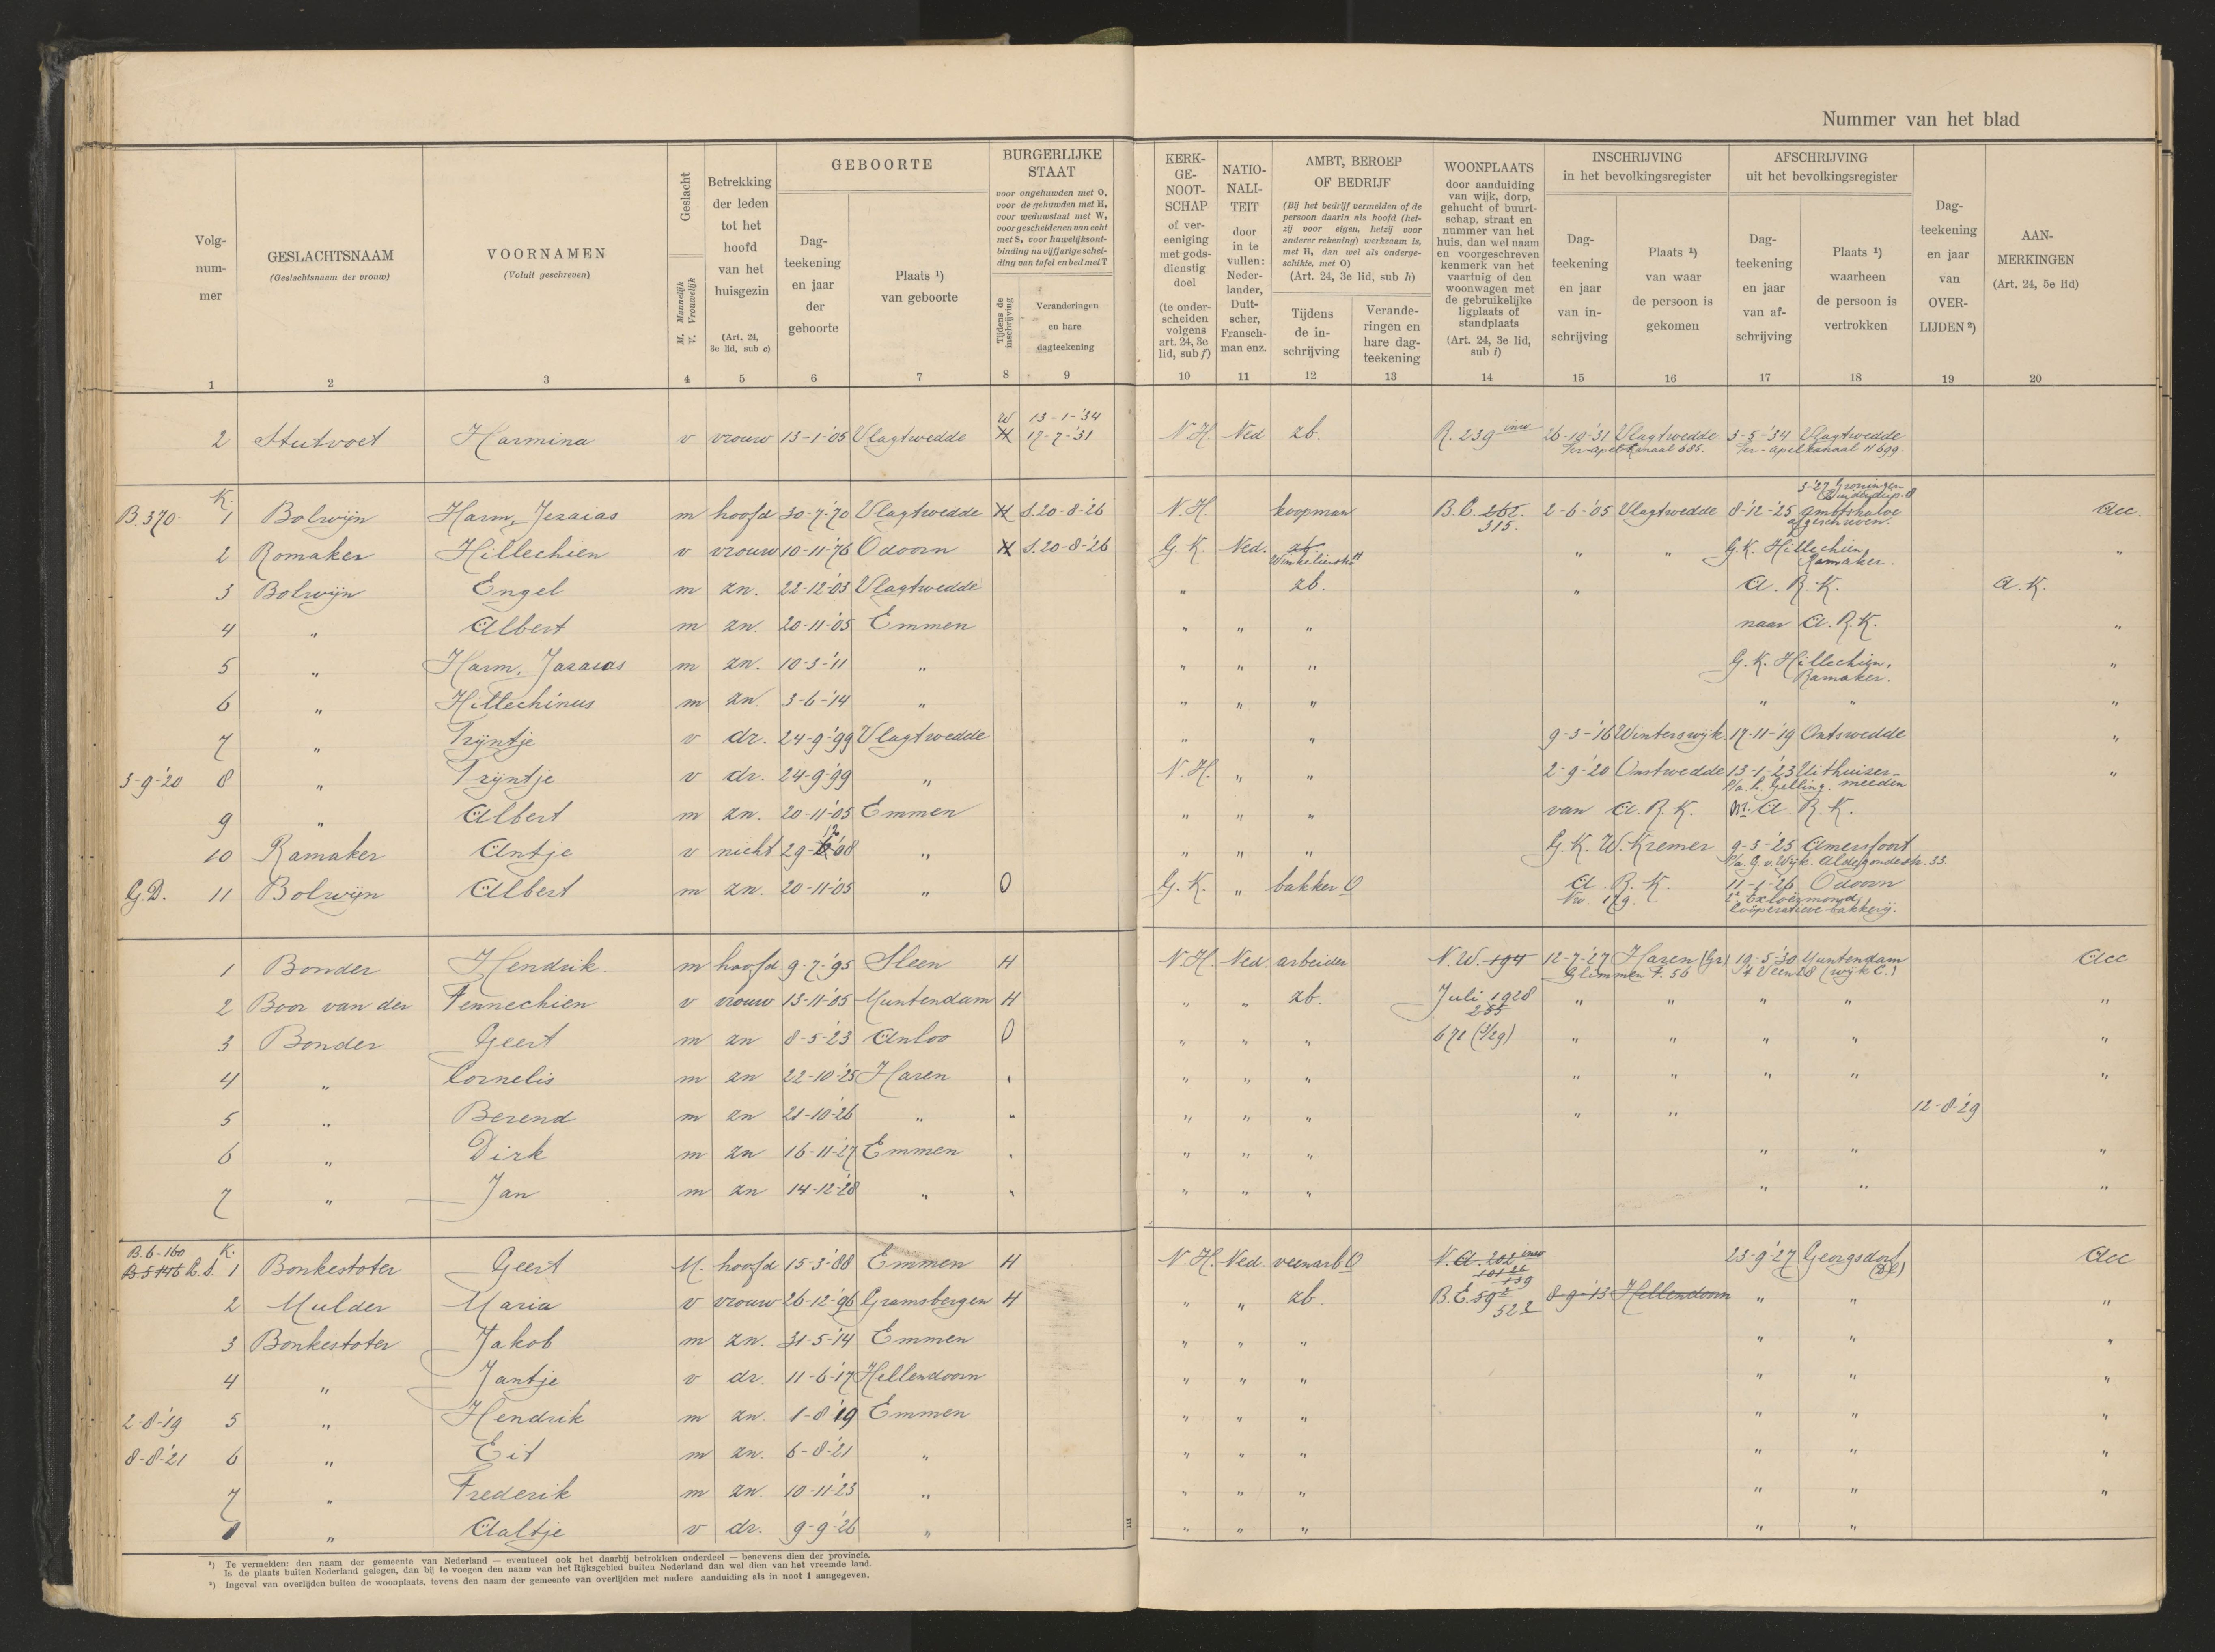 Nummer van het blad
Volg-
num-
mer
GESLACHTSNAAM
(Geslachtsnaam der vrouw)
VOORNAMEN
(Voluit geschreven)
Geslacht
M. Mannelijk
V. Vrouwelijk
Betrekking
der leden
tot het
hoofd
van het
huisgezin
(Art. 24,
3e lid, sub c)
GEBOORTE
Dag-
teekening
en jaar
der
geboorte
Plaats ¹)
van geboorte
BURGERLIJKE
STAAT
voor ongehuwden met O,
voor de gehuwden met H,
voor weduwstaat met W,
voor gescheidenen van echt
met S, voor huwelijksont-
binding na vijfjarige schei-
ding van tafel en bed met T
Tijdens de
inschrijving
Veranderingen
en hare
dagteekening
KERK-
GE-
NOOT-
SCHAP
of ver-
eeniging
met gods-
dienstig
doel
(te onder-
scheiden
volgens
art. 24, 3e
lid, sub f)
NATIO-
NALI-
TEIT
door
in te
vullen:
Neder-
lander,
Duit-
scher,
Fransch-
man enz.
AMBT, BEROEP
OF BEDRIJF
(Bij het bedrijf vermelden of de
persoon daarin als hoofd (het-
zij voor eigen, hetzij voor
anderer rekening) werkzaam is,
met H, dan wel als onderge-
schikte, met O)
(Art. 24, 3e lid, sub h)
Tijdens
de in-
schrijving
Verande-
ringen en
hare dag-
teekening
WOONPLAATS
door aanduiding
van wijk, dorp,
gehucht of buurt-
schap, straat en
nummer van het
huis, dan wel naam
en voorgeschreven
kenmerk van het
vaartuig of den
woonwagen met
de gebruikelijke
ligplaats of
standplaats
(Art. 24, 3e lid,
sub i)
INSCHRIJVING
in het bevolkingsregister
Dag-
teekening
en jaar
van in-
schrijving
Plaats ¹)
van waar
de persoon is
gekomen
AFSCHRIJVING
uit het bevolkingsregister
Dag-
teekening
en jaar
van af-
schrijving
Plaats ¹)
waarheen
de persoon is
vertrokken
Dag-
teekening
en jaar
van
OVER-
LIJDEN ²)
AAN-
MERKINGEN
(Art. 24, 5e lid)
1 2 3 4 5 6 7 8 9 10 11 12 13 14 15 16 17 18 19 20
W 13-1-'34
2 Stutvoet Harmina v vrouw 13-1-'05 Vlagtwedde H 17-7-'31 N.H. Ned zb. R. 239 inw 26-10-'31 Vlagtwedde. 3-5-'34 Vlagtwedde
Ter-apelkanaal 685. Ter-apelkanaal H 699.
3-'27 Groningen
B. 370 K. 1 Bolwijn Harm, Jesaias m hoofd 30-7-'70 Vlagtwedde H S. 20-8-'26 N.H. koopman B.C. 262. 2-6-'05 Vlagtwedde 8-12-'25 ambtshalve Acc.
315. afgeschreven.
2 Romaker Hillechien v vrouw 10-11-'76 Odoorn H S. 20-8-'26 G.K. Ned. zb. " " G.K. Hillechien "
Ramaker.
3 Bolwijn Engel m zn. 22-12-'03 Vlagtwedde " zb. " A. R. K. A. K.
4 " Albert m zn. 20-11-'05 Emmen " " " naar A. R. K. "
5 " Harm, Jasaias m zn. 10-3-'11 " " " " G. K. Hillechien, "
Ramaker.
6 " Hillechinus m zn. 3-6-'14 " " " " " " "
7 " Trijntje v dr. 24-9-'99 Vlagtwedde " " 9-3-'16 Winterswijk 17-11-'19 Ontswedde "
3-9-'20 8 " Trijntje v dr. 24-9-'99 " N.H. " " 2-9-'20 Onstwedde 13-1-'23 Uithuizer- "
meeden
9 " Albert m zn. 20-11-'05 Emmen " " " van A. R. K. A. R. K.
12
10 Ramaker Antje v nicht 29- '08 " " " " G. K. W. Kremer 9-3-'25 Amersfoort
p/a. G. v. Wijk. Aldegondestr. 33
G.D. 11 Bolwijn Albert m zn. 20-11-'05 " O G.K. " bakker O A. R. K. 11-1-'26 Odoorn
2e Exloërmond
Coöperatieve bakkerij.
1 Bonder Hendrik. m hoofd 9-7-'95 Sleen H N.H. Ned. arbeider N.W. 194 12-7-'27 Haren (Gr) 19-5-'30 Muntendam Acc
Glimmen F. 56 (wijk C.)
2 Boor van der Fennechien v vrouw 13-11-'05 Muntendam H " " zb. Juli 1928 " " " " "
255
3 Bonder Geert m zn 8-5-'23 Anloo O " " " 671 (3/29) " " " " "
4 " Cornelis m zn 22-10-'25 Haren " " " " " " " " "
5 " Berend m zn 21-10-'26 " " " " " " " 12-8-'29
6 " Dirk m zn 16-11-'27 Emmen " " " " " " "
7 " Jan m zn 14-12-'28 " " " " " " " "
B. 6-160 K.
B. 5 146 1 Bonkestoter Geert M. hoofd 15-3-'88 Emmen H N.H. Ned. veenarb O N.A. 202 inw 23-9-'27 Georgsdorf Acc
139
2 Mulder Maria v vrouw 26-12-'96 Gramsbergen H " " zb. B.E. 59² 8-9-'13 Hellendoorn " " "
522
3 Bonkestoter Jakob m zn. 31-5-'14 Emmen " " " " " "
4 " Jantje v dr. 11-6-'17 Hellendoorn " " " " " "
2-8-'19 5 " Hendrik m zn. 1-8-'19 Emmen " " " " " "
8-8-'21 6 " Eit m zn. 6-8-'21 " " " " " " "
7 " Frederik m zn. 10-11-'23 " " " " " " "
8 " Aaltje v dr. 9-9-'26 " " " " " "
¹) Te vermelden: den naam der gemeente van Nederland — eventueel ook het daarbij betrokken onderdeel — benevens dien der provincie.
Is de plaats buiten Nederland gelegen, dan bij te voegen den naam van het Rijksgebied buiten Nederland dan wel dien van het vreemde land.
²) Ingeval van overlijden buiten de woonplaats, tevens den naam der gemeente van overlijden met nadere aanduiding als in noot 1 aangegeven.